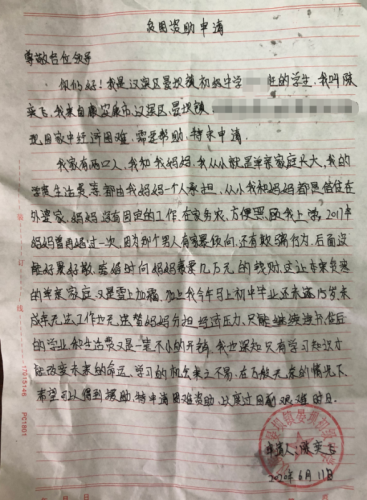 贫困资助申请
尊敬各位领导
你们好！我是汉滨区晏坝镇初级中学 班的学生，我叫陈
奕飞，我来自康安康市，汉滨区晏坝镇
现因家中经济困难，需是帮助，特来申请。
我家有两口人，我和我妈妈，我从小就是单亲家庭长大，我的
学费生活费等都由我妈妈一个人承担，从小我和妈妈都是借住在
外婆家，妈妈没有固定的工作，在家务农，方便照顾我上学，2017年
妈妈曾再婚过一次，因为那个男人有家暴倾向，还有欺骗行为，后面没
能好果好散，离婚时问妈妈索要几万元的钱财，这让本来贫寒
的单亲家庭，又是雪上加霜，加上我今年马上初中毕业还未满
成年无法工作也无法替妈妈分担经济压力，只能继续读书，今后
的学业和生活费又是一笔不小的开销，我也深知只有学习知识才
能改变未来的命运，学习的机会来之不易，在万般无奈的情况下
希望可以得到援助，特申请困难资助，以度过目前艰难时日。
申请人：陈奕飞
2020年6月11日